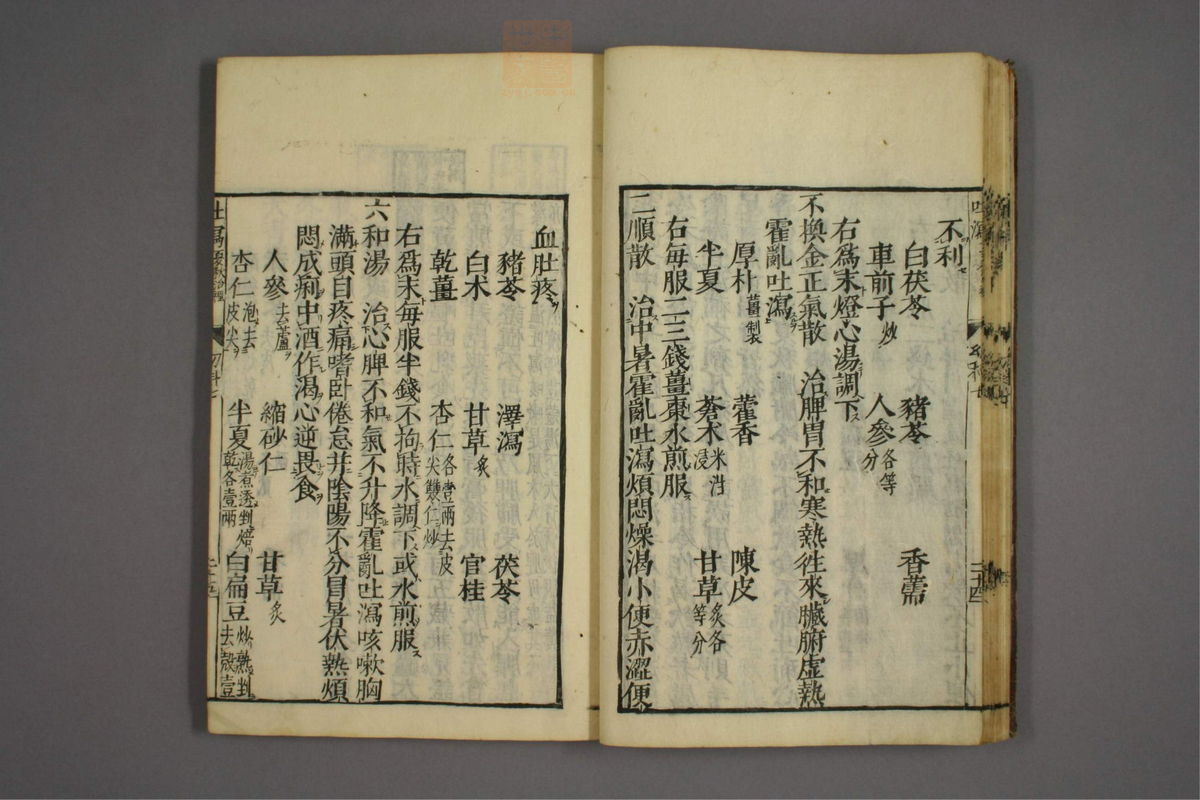 不利
白茯苓 豬苓 香薷
車前子炒 人參各等分
右爲末燈心湯調下
不換金正氣散 治脾胃不和寒熱徃來臟腑虛熱
霍亂吐瀉
厚朴薑製 藿香 陳皮
半夏 蒼术米泔浸 甘草炙各等分
右每服二三錢薑棗水煎服
二順散 治中暑霍亂吐瀉煩悶燥渴小便赤澀便
血肚疼
豬苓 澤瀉 茯苓
白术 甘草炙 官桂
乾薑 杏仁各壹兩去皮尖雙仁炒
右爲末每服半錢不拘時水調下或水煎服
六和湯 治心脾不和氣不升降霍亂吐瀉咳嗽胸
滿頭目疼痛嗜卧倦怠并陰陽不分冒暑伏熱煩
悶成痢中酒作渴心逆畏食
人參去蘆 縮砂仁 甘草炙
杏仁泡去皮尖 半夏湯煮透剉焙乾各壹兩 白扁豆炒熟剉去殼壹